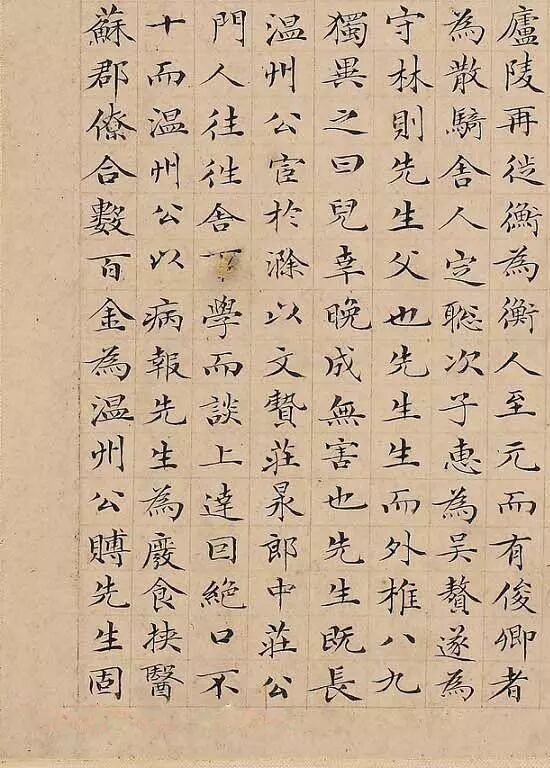 廬陵再徙衡為衡人至元而有俊卿者
為散騎舍人定聡次子惠為吴贅遂為
守林則先生父也先生生而外椎八九
獨異之曰兒幸晚成無害也先生既長
温州公宦於滁以文贄莊㫤郎中莊公
門人往往舍下學而談上達回絶口不
十而温州公以病報先生為廢食挾醫
蘇郡僚合數百金為温州公賻先生固